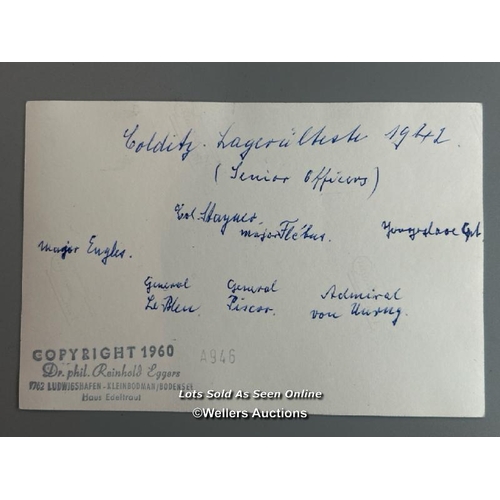 Colditz. Lagerälteste 1942
(Senior Officers)
Col. Stayner.
major Flébus.
Yougoslave Cpt.
major Engles.
General
Le Bleu
General
Piscor.
Admiral
von Unrug.
COPYRIGHT 1960
Dr. phil. Reinhold Eggers
7762 LUDWIGSHAFEN - KLEINBODMAN/BODENSEE
Haus Edeltraut
A946
Lots Sold As Seen Online
©Wellers Auctions